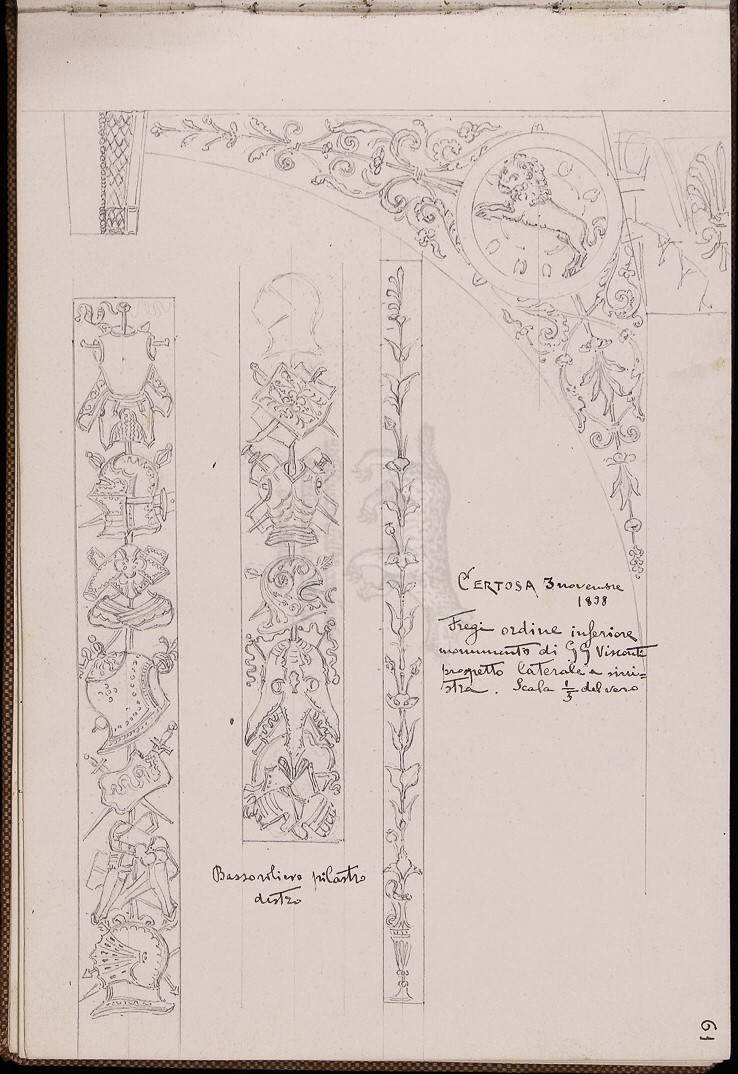 CERTOSA 3 novembre
1898
Fregi ordine inferiore
monumento di GG Visconti
prospetto laterale a sini=
stra. Scala 1/5 del vero
Bassorilievo pilastro
destro
19